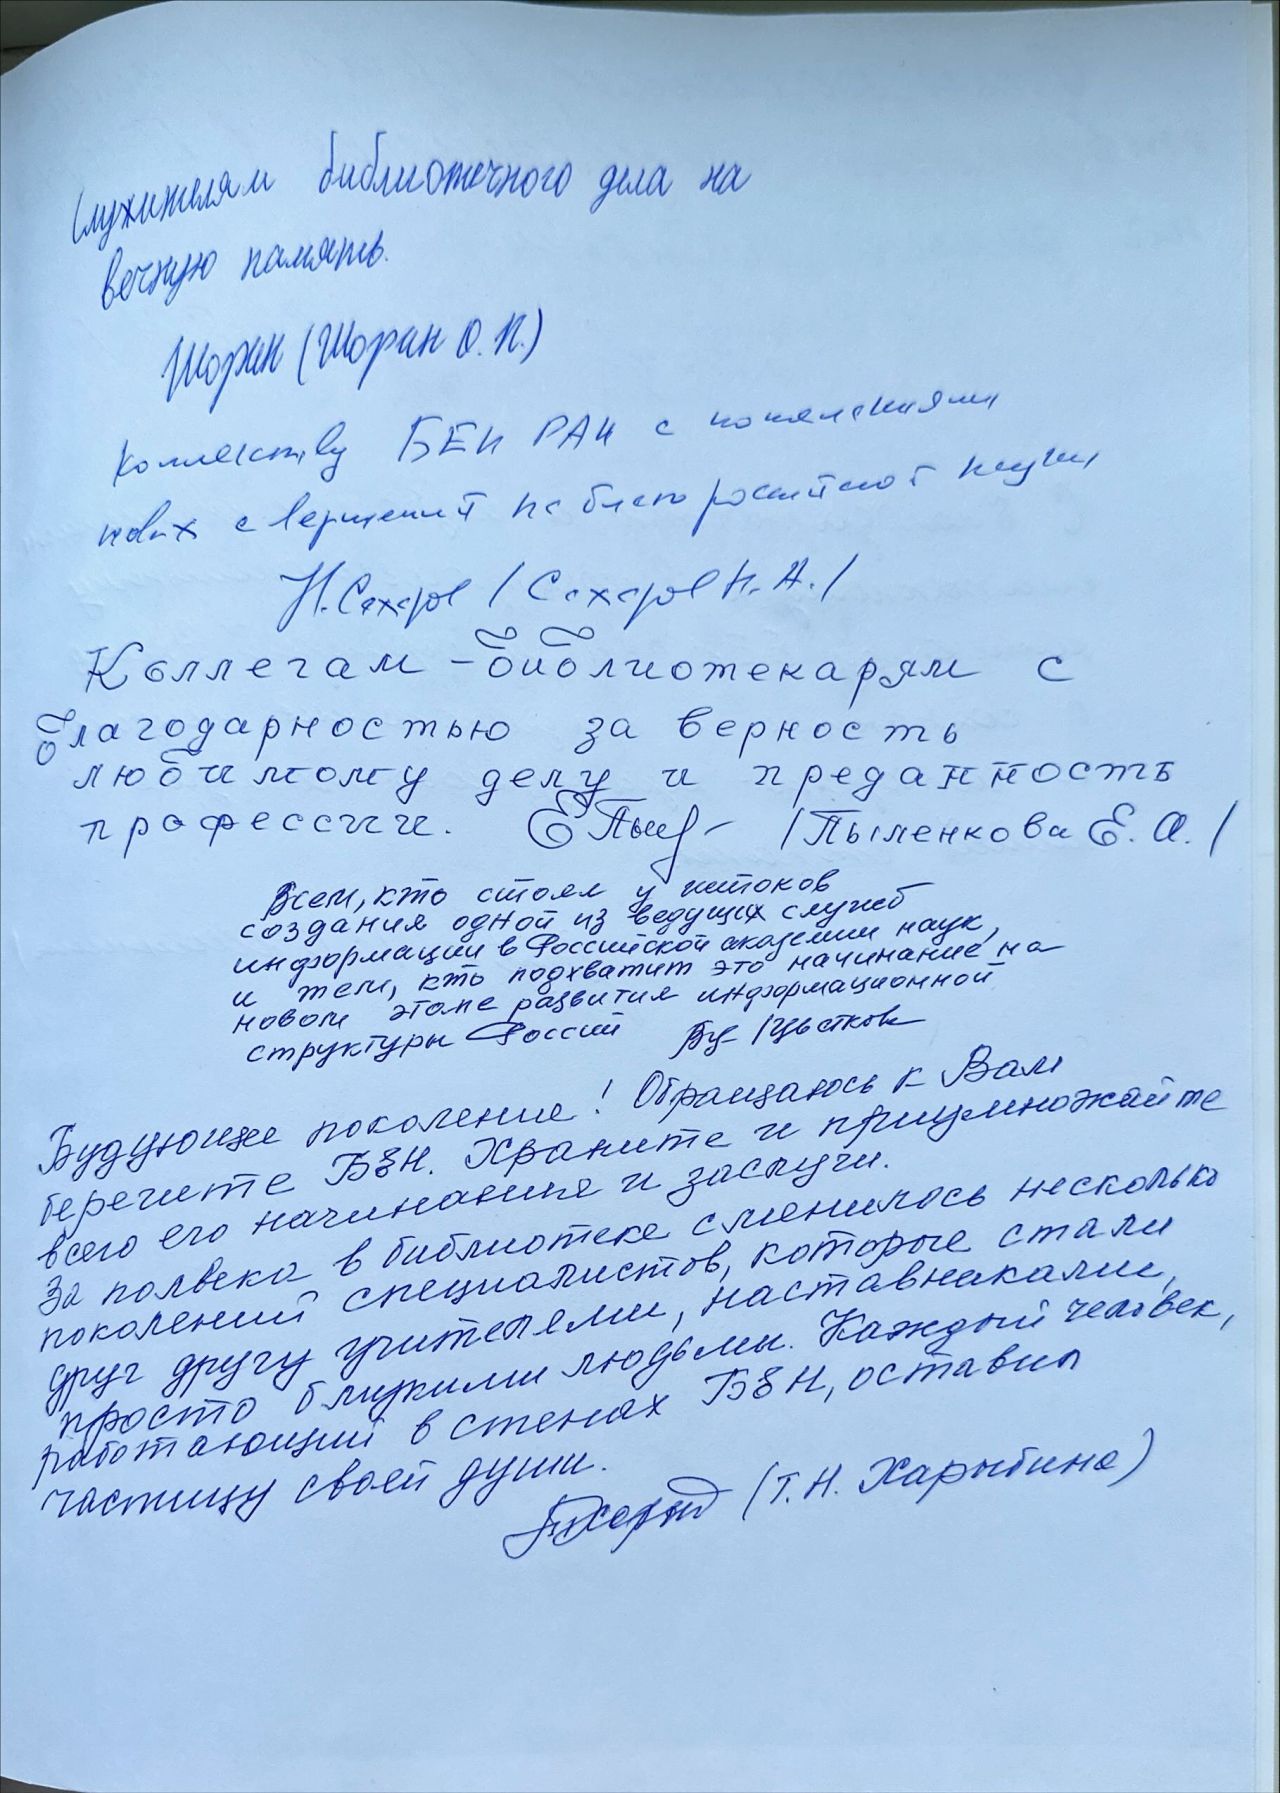 Служителям библиотечного дела на
вечную память.
Шоран (Шоран О.П.)
Коллективу БЕН РАН с пожеланиями
новых свершений на благо российской науки
Н. Сахаров / Сахаров Н.А. /
Коллегам - библиотекарям с
благодарностью за верность
любимому делу и преданность
профессии. / Пыленкова Е. А. /
Всем, кто стоял у истоков
создания одной из ведущих служб
информации в Российской академии наук,
и тем, кто подхватит это начинание на
новом этапе развития информационной
структуры России / Цветкова
Будующие поколение! Обращаюсь к Вам
берегите БЕН. Храните и приумножайте
всего его начинания и заслуги.
За полвека в библиотеке сменилось несколько
поколений специалистов, которые стали
друг другу учителями, наставниками,
просто близкими людьми. Каждый человек,
работающий в стенах БЕН, оставил
частицу своей души.
(Т.Н. Харыбина)